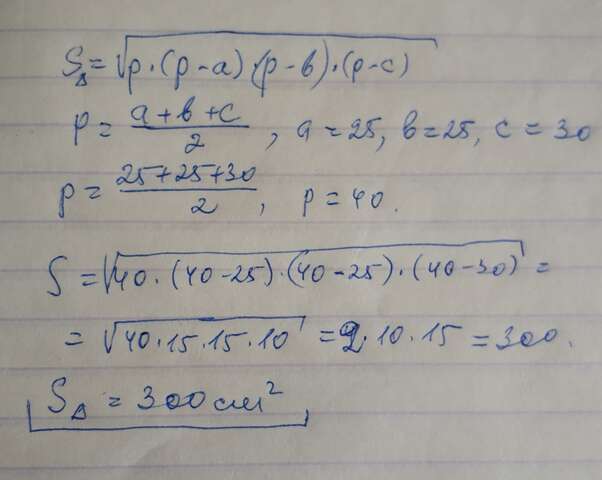 S△ = √p·(p-a)·(p-b)·(p-c)
p = a+b+c/2, a = 25, b = 25, c = 30
p = 25+25+30/2, p = 40.
S = √40·(40-25)·(40-25)·(40-30) =
= √40·15·15·10 = 2·10·15 = 300.
S△ = 300 см²